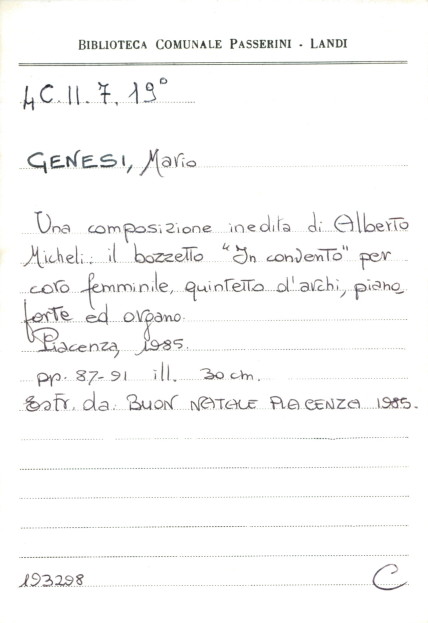 BIBLIOTECA COMUNALE PASSERINI - LANDI
4C.II.7.19°
GENESI, Mario
Una composizione inedita di Alberto
Micheli: il bozzetto "In convento" per
coro femminile, quintetto d'archi, piano
forte ed organo.
Piacenza, 1985.
pp. 87-91 ill. 30 cm.
Estr. da: BUON NATALE PIACENZA 1985.
193298 C